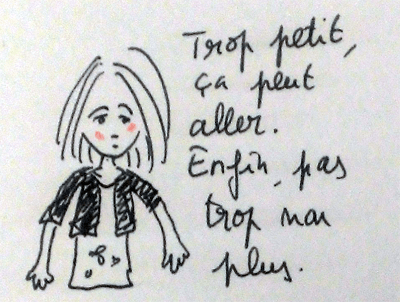 Trop petit,
ça peut
aller.
Enfin, pas
trop non
plus.